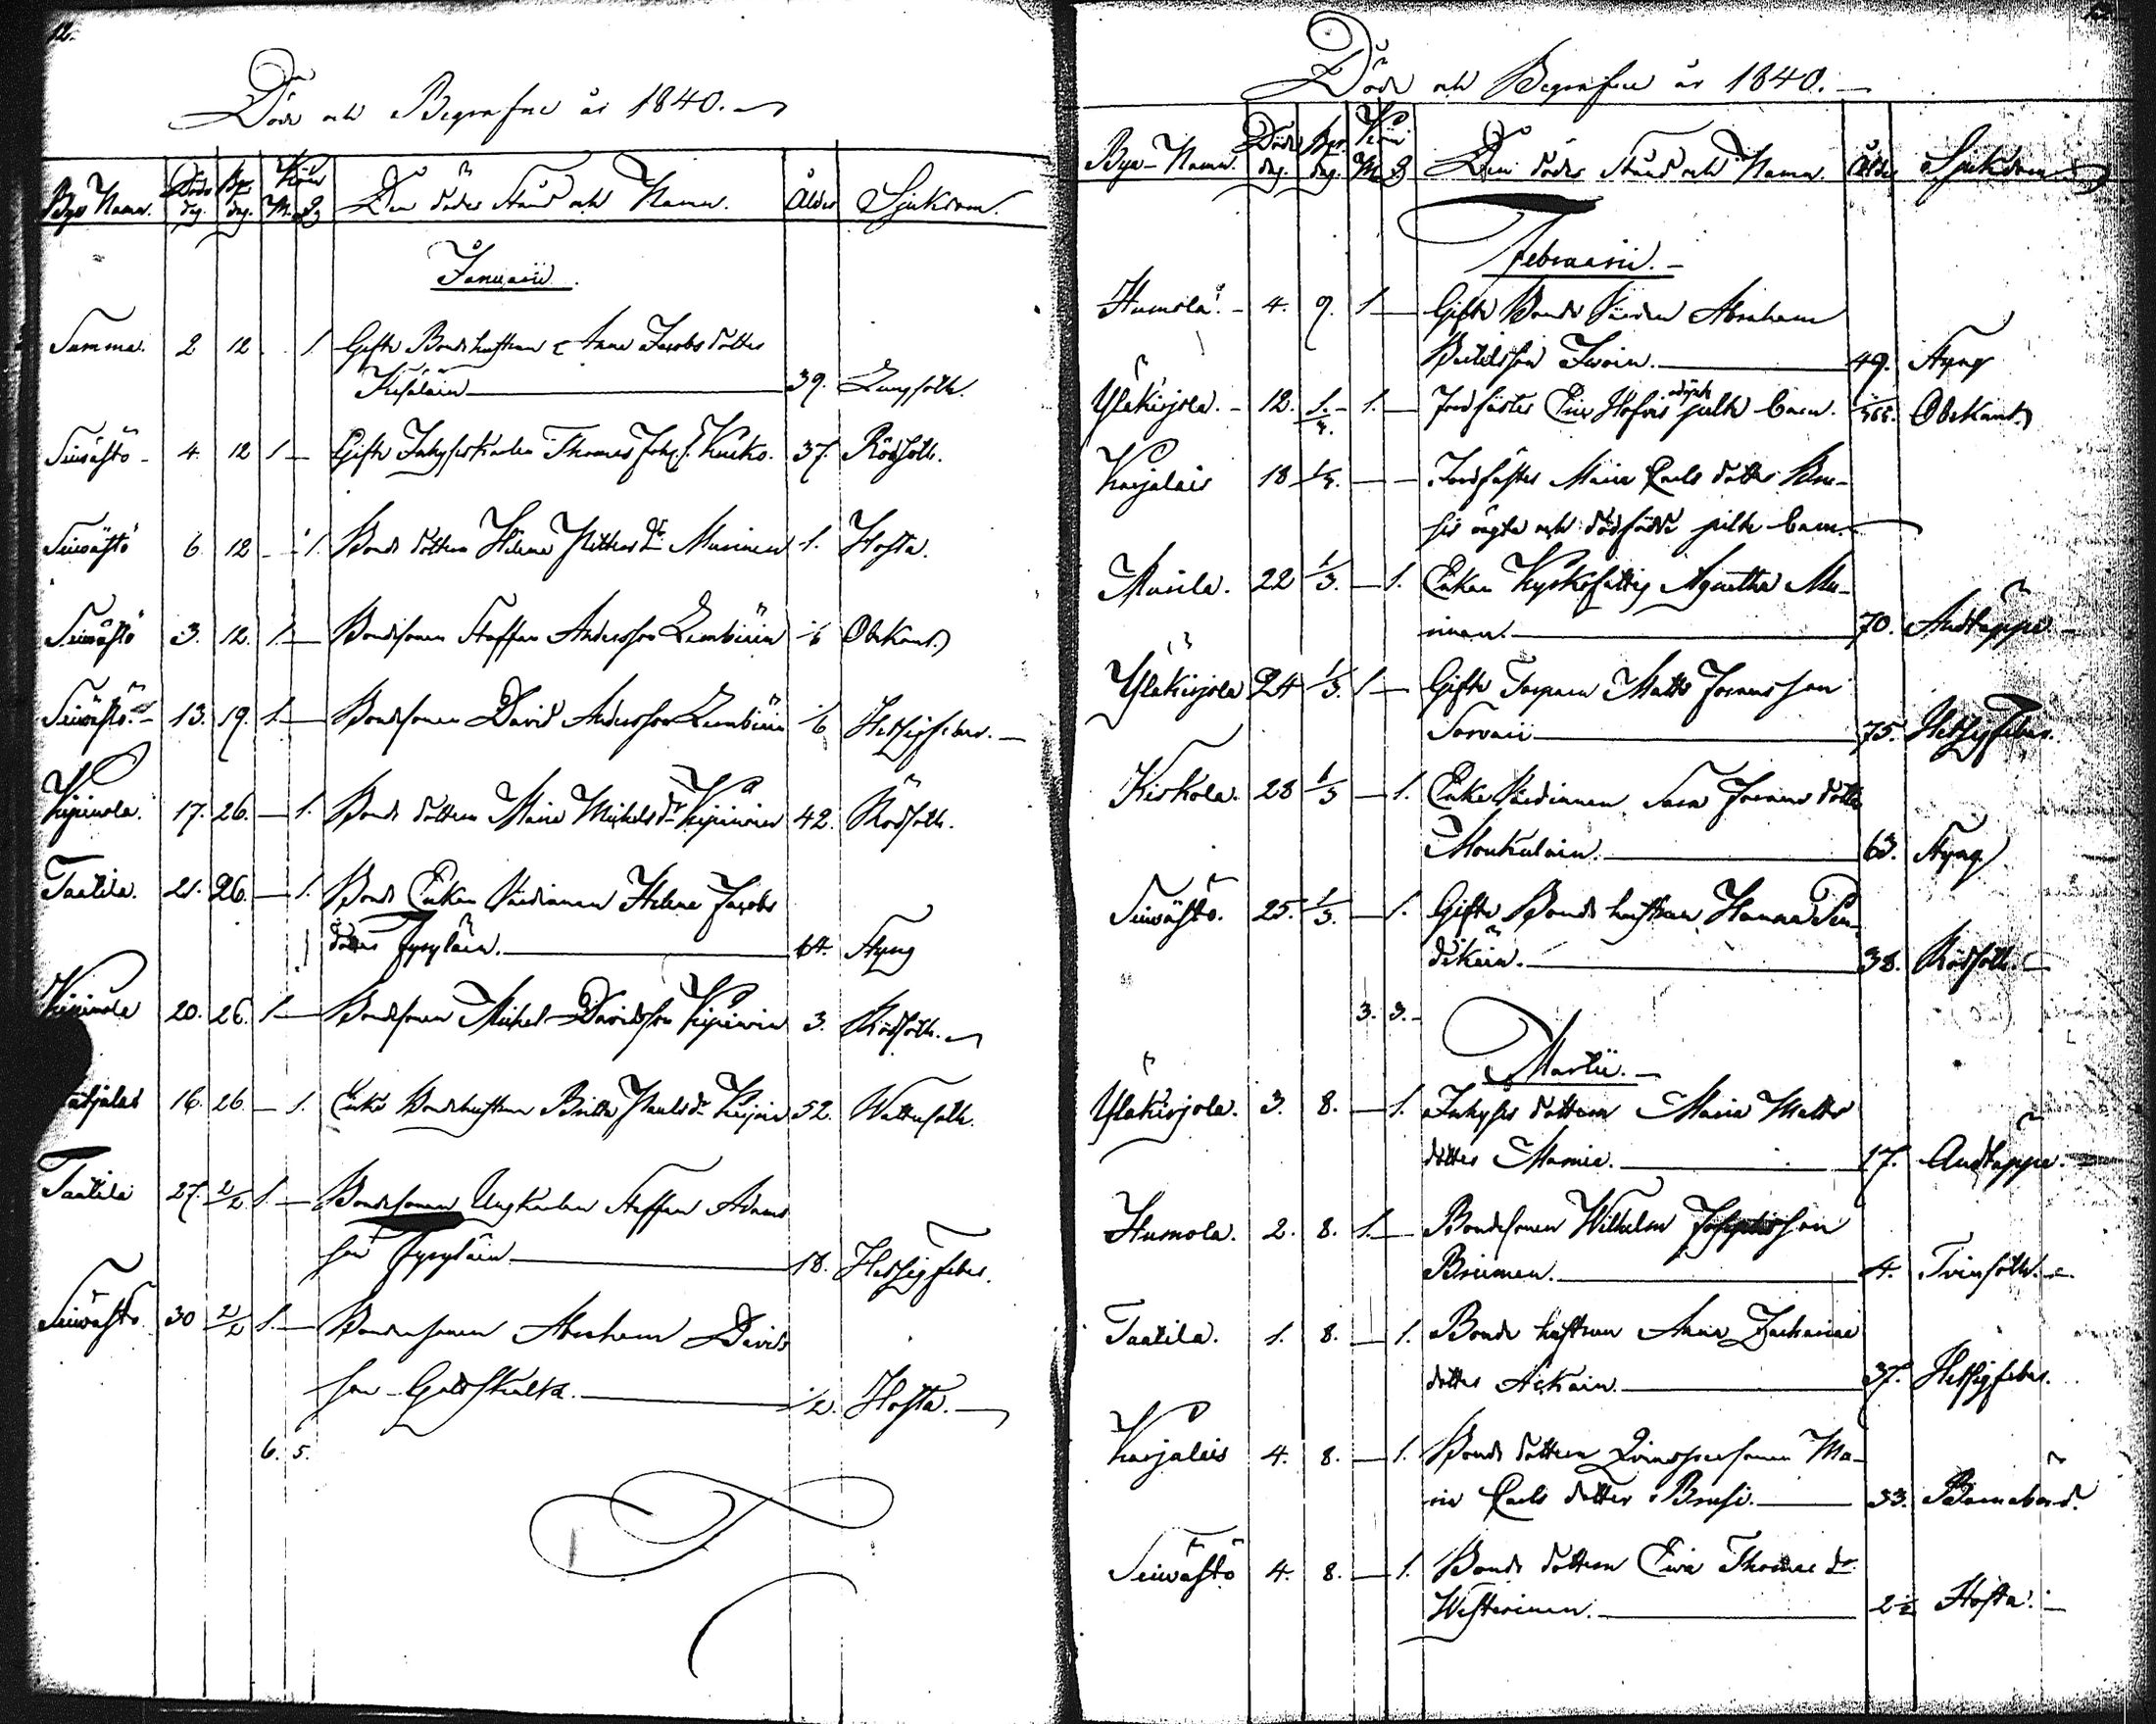 12.
Döde och Begrafne år 1840.
Bya Namn. Döds dag. Begr. dag. Kön M. Q. Den dödes Stånd och Namn. Ålder Sjukdom.
Januarii.
Summa. 2 12 . . 1. Gifte Bondehustrun Anna Jacobs dotter
39. Lungsoth.
Seivästö - 4. 12 1 — Gifte Thomas Kuko. 37. Rödsoth.
Seivästö 6. 12 - 1. Bonde dottern Helena Petters dr Musinen 1. Hosta.
Seivästö 3. 12. 1. — Bondesonen Staffan Andersson Lembinin Obekant.
Seivästö. 13. 19. 1. — Bondesonen David Andersson Lembinin Hetsigfeber. —
Kipinola. 17. 26. — 1. Bonde dottern Maria Michels dr Kipinoin 42. Rödsoth.
Taatila. 21. 26. — 1. Bonde Enkan Värdinnan Helena Jacobs
dotter Pyryläin. 64. Styng
Kipinola 20. 26. 1. — Bondesonen Michel Davidsson Kipinoin 3. Rödsoth.
16. 26 — 1. Enke Bondehustrun Britta Pauls dr 52. Wattusoth.
Taatila 27. 2/2 1. — Bondesonen Ungkarlen Staffan Adams
son Pyryläin 18. Hetsigfeber.
Seivästö. 30 2/2 1. — Bondesonen Abraham Davids
son Gottskalk. 1/2. Hosta. —
6. 5.
Döde och Begrafne år 1840. —
Bya-Namn. Döds dag. Begr. dag. Kön M. Q. Den dödes Stånd och Namn. Ålder Sjukdom
Februarii. —
Humola. - 4. 9. 1 — Gifte Bonde Värden Abraham
49. Styng
Yläkirjola. - 12. 1/3. 1. — Jordfästes barn. Obekant.
Karjalais 18 1/3. — — Jordfästes Maria Carls dotter Bru-
sis oägta och dödfödde pilte barn.
Musila. 22 1/3. — 1. Enkan Kyrkofattig Agnetha Mu-
sinen. 70. Andtäppa —
Yläkirjola 24 1/3. 1 — Gifte Torparen Matts Joransson
Torvai 75. Hetsigfeber.
Kiskola. 28 1/3 — 1. Enke Värdinnan Sara Jorans dotter
Moukulain. 63. Styng
Seivästö. 25. 1/3. — 1. Gifte Bonde hustrun Hanna
38. Rödsoth.
3. 3.
Martii. —
Yläkirjola. 3. 8. — 1. Inhyses dottern Maria Matts
dotter 17. Andtäppa.
Humola. 2. 8. 1. — Bondesonen Wilhelm Josephsson
4. Tvinsoth.
Taatila. 1. 8. — 1. Bonde hustrun Anna Zachariae
dotter Äikäin. 37. Hetsigfeber.
Karjalais 4. 8. — 1. Bonde dottern Qvinspersonen Ma-
ria Carls dotter Brusi. 33. Barnabörd.
Seivästö 4. 8. — 1. Bonde dottern Eva Thomae dr
Westerinen. 2 1/2 Hosta. —